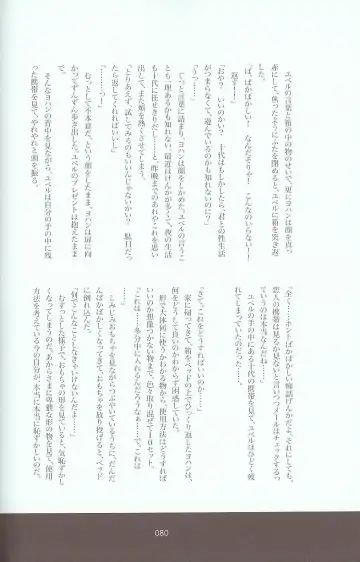 ユベルの言葉と箱の中の物のせいで、更にヨハンは顔を真っ
赤にした。焦ったようにふたを閉めると、ユベルに箱を突き返
した。
「ば、ばかばかしい！　なんだそりゃ！　こんなのいらない！
返す‼」
「おや？　いいのかい？　十代はもしかしたら、君との性生活
がつまらなくて、遊んでいるのかも知れないのに？」
「うっ……」
ぐっと言葉に詰まり、ヨハンは顔をしかめた。ユベルの言うこ
とも一理あるかも知れない。最近はけんかが多く、夜の生活
も十代に任せきりだし――と、昨晩までのあれやこれを思い
出して、また頬を熱くさせてしまう。
「とりあえず、試してみるのもいいんじゃないかい？　駄目だっ
たら返してくれればいいし」
「………っ！」
むっとして不本意だ、という顔をしたまま、ヨハンは扉に向
かってずんずん歩き出した。ユベルのプレゼントは抱えたまま
そんなヨハンの背中を見ながら、ユベルは自分の手の中に残
った携帯を見て、やれやれと頭を振る。
「全く……ホントばかばかしい痴話げんかだよ。それにしても、
恋人の携帯は見るか見ないかと言いつつメールはチェックするっ
ていうのは本当なんだね……」
ユベルの手の中にある十代の携帯を見て、ユベルはひどく疲
れてしまっていたのだった。
「さて、これをどうすればいいのか……」
家に帰ってきて、箱をベッドの上でひっくり返したヨハンは、
何をどうして良いのかわからず困惑していた。
形で大体何に使うかわかる物から、使用方法はどうすれば
いいのか想像つかない物まで、色々取り混ぜて10セット。
「これは……多分中に入れるんだろうなぁ……で、これは
……」
しみじみおもちゃを見ながらつぶやいているうちに、だんだ
んばかばかしくなってきて、おもちゃを放り投げると、ベッド
に倒れ込んだ。
「何でこんなことしなきゃいけないんだよ………」
むすっとした様子で、おもちゃの形を見ていると、気恥ずかし
くなってしまうのだ。あからさまに卑猥な形の物を見て、使用
方法を考えている今の自分が、本当に本当に恥ずかしいのだ。
080